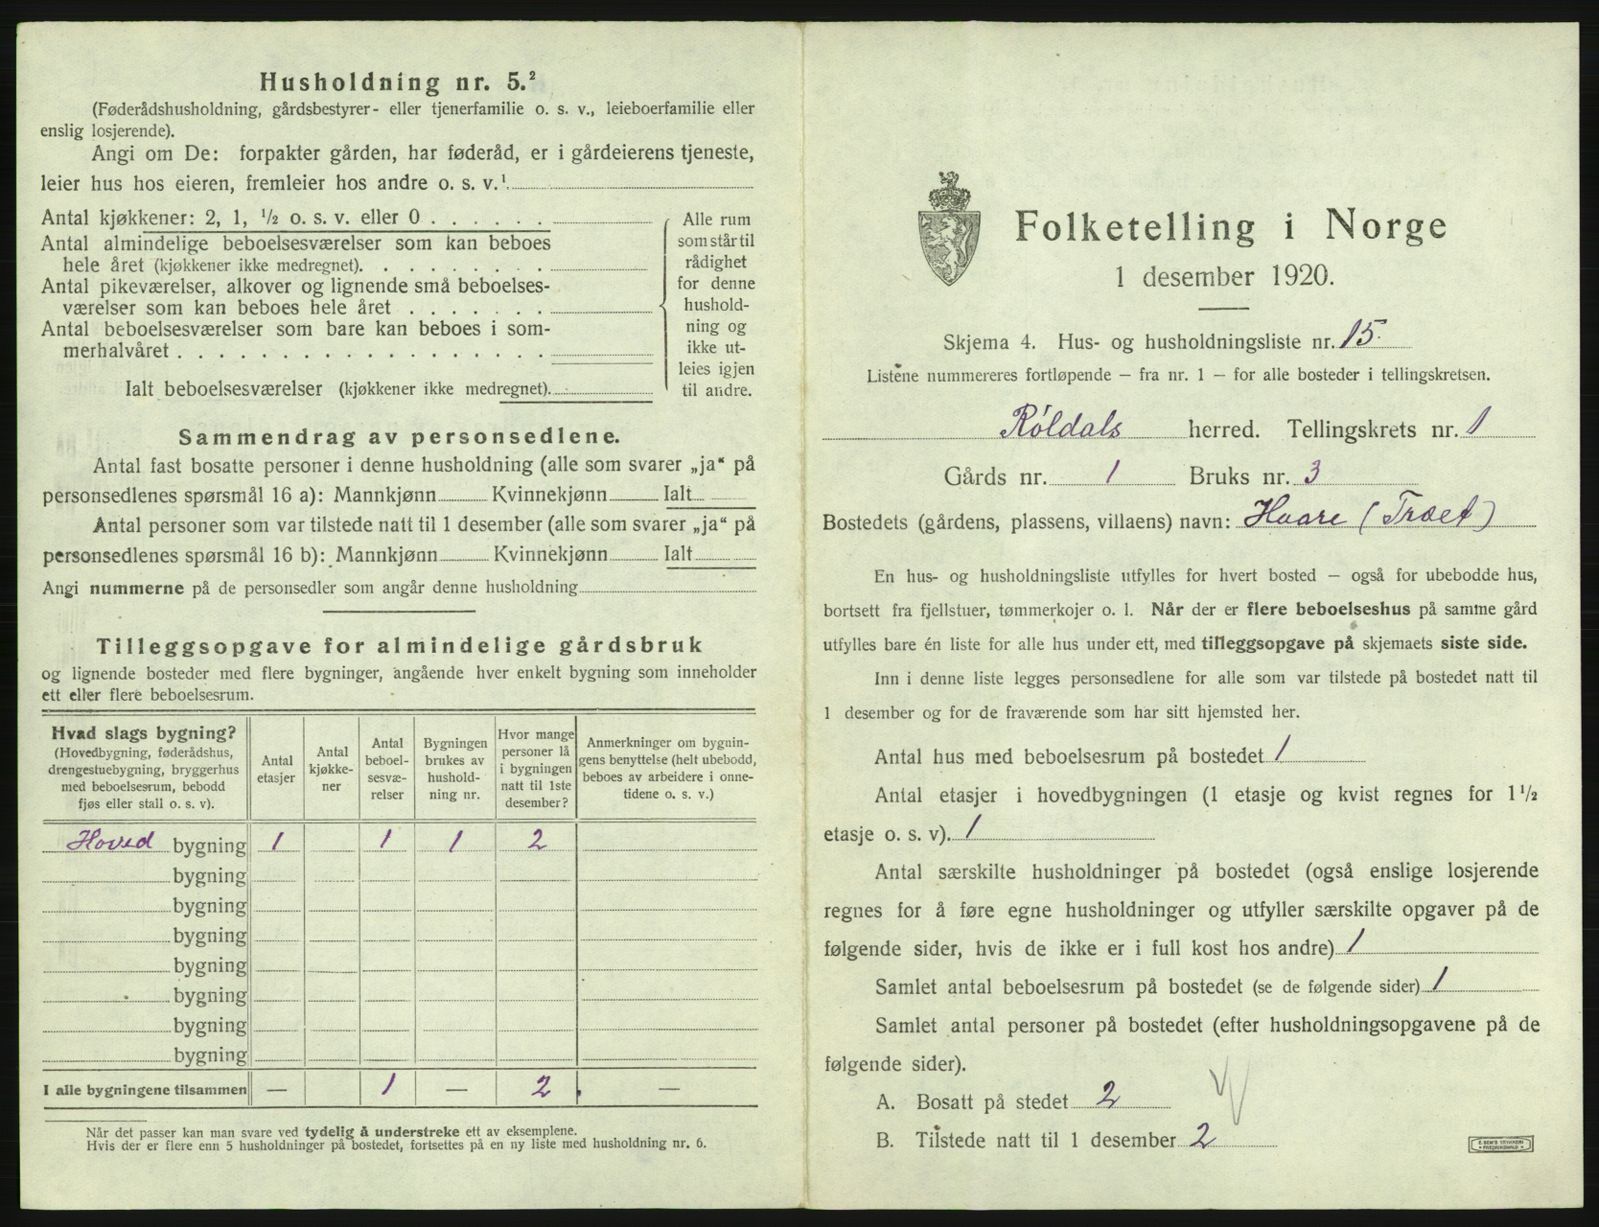 Husholdning nr. 5.²
(Føderådshusholdning, gårdsbestyrer- eller tjenerfamilie o. s. v., leieboerfamilie eller
enslig losjerende).
Angi om De: forpakter gården, har føderåd, er i gårdeierens tjeneste,
leier hus hos eieren, fremleier hos andre o. s. v.¹
Antal kjøkkener: 2, 1, ½ o. s. v. eller 0
Antal almindelige beboelsesværelser som kan beboes
hele året (kjøkkener ikke medregnet).
Antal pikeværelser, alkover og lignende små beboelses-
værelser som kan beboes hele året
Antal beboelsesværelser som bare kan beboes i som-
merhalvåret
Ialt beboelsesværelser (kjøkkener ikke medregnet).
Alle rum
som står til
rådighet
for denne
hushold-
ning og
ikke ut-
leies igjen
til andre.
Sammendrag av personsedlene.
Antal fast bosatte personer i denne husholdning (alle som svarer „ja“ på
personsedlenes spørsmål 16 a): Mannkjønn Kvinnekjønn Ialt
Antal personer som var tilstede natt til 1 desember (alle som svarer „ja“ på
personsedlenes spørsmål 16 b): Mannkjønn Kvinnekjønn Ialt
Angi nummerne på de personsedler som angår denne husholdning
Tilleggsopgave for almindelige gårdsbruk
og lignende bosteder med flere bygninger, angående hver enkelt bygning som inneholder
ett eller flere beboelsesrum.
Hvad slags bygning?
(Hovedbygning, føderådshus,
drengestuebygning, bryggerhus
med beboelsesrum, bebodd
fjøs eller stall o. s. v).
Antal
etasjer
Antal
kjøkke-
ner
Antal
beboel-
sesvæ-
relser
Bygningen
brukes av
hushold-
ning nr.
Hvor mange
personer lå
i bygningen
natt til 1ste
desember?
Anmerkninger om bygnin-
gens benyttelse (helt ubebodd,
beboes av arbeidere i onne-
tidene o. s. v.)
Hoved bygning 1 1 1 2
bygning
bygning
bygning
bygning
bygning
bygning
bygning
I alle bygningene tilsammen — 1 — 2 —
¹ Når det passer kan man svare ved tydelig å understreke ett av eksemplene.
² Hvis der er flere enn 5 husholdninger på bostedet, fortsettes på en ny liste med husholdning nr. 6.
Folketelling i Norge
1 desember 1920.
Skjema 4. Hus- og husholdningsliste nr. 15.
Listene nummereres fortløpende — fra nr. 1 — for alle bosteder i tellingskretsen.
Röldals herred. Tellingskrets nr. 1
Gårds nr. 1 Bruks nr. 3
Bostedets (gårdens, plassens, villaens) navn: Haare (Træet)
En hus- og husholdningsliste utfylles for hvert bosted — også for ubebodde hus,
bortsett fra fjellstuer, tømmerkojer o. l. Når der er flere beboelseshus på samme gård
utfylles bare én liste for alle hus under ett, med tilleggsopgave på skjemaets siste side.
Inn i denne liste legges personsedlene for alle som var tilstede på bostedet natt til
1 desember og for de fraværende som har sitt hjemsted her.
Antal hus med beboelsesrum på bostedet 1
Antal etasjer i hovedbygningen (1 etasje og kvist regnes for 1½
etasje o. s. v). 1
Antal særskilte husholdninger på bostedet (også enslige losjerende
regnes for å føre egne husholdninger og utfyller særskilte opgaver på de
følgende sider, hvis de ikke er i full kost hos andre) 1
Samlet antal beboelsesrum på bostedet (se de følgende sider) 1
Samlet antal personer på bostedet (efter husholdningsopgavene på de
følgende sider).
A. Bosatt på stedet 2
B. Tilstede natt til 1 desember 2